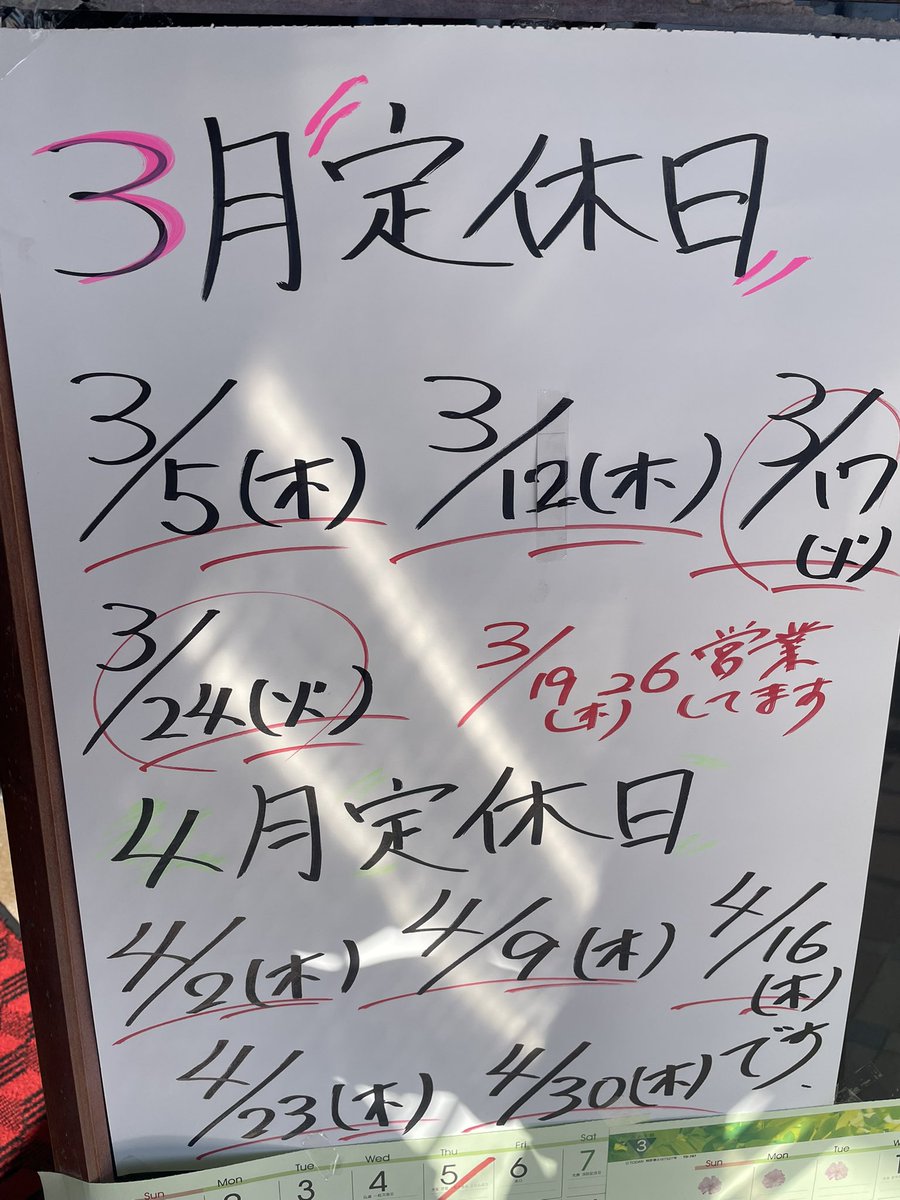 3月定休日
3/5(木) 3/12(木) 3/17(火)
3/24(火) 3/19(木) 26 営業してます
4月定休日
4/2(木) 4/9(木) 4/16(木)
4/23(木) 4/30(木)です、
Sun Mon Tue Wed Thu Fri Sat
2 3 4 5 6 7
3
Sun Mon Tue Wed